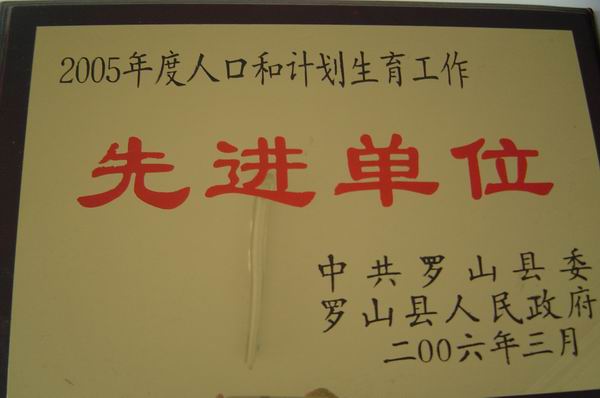 2005年度人口和计划生育工作
先进单位
中共罗山县委
罗山县人民政府
二00六年三月